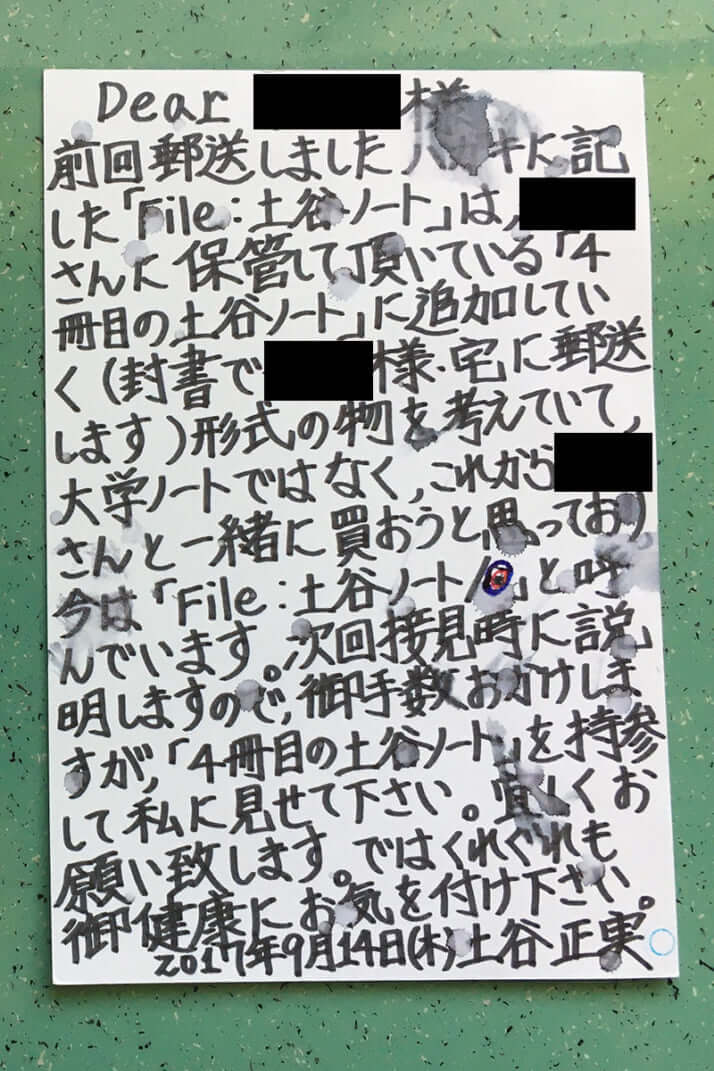 Dear 様
前回郵送しましたハガキに記
した「File:土谷ノート」は,
さんに保管して頂いている「4
冊目の土谷ノート」に追加してい
く(封書で 様宅に郵送
します)形式の物を考えていて,
大学ノートではなく,これから
さんと一緒に買おうと思っており
今は「File:土谷ノート」と呼
んでいます。次回接見時に説
明しますので,御手数おかけしま
すが,「4冊目の土谷ノート」を持参
して私に見せて下さい。宜しくお
願い致します。ではくれぐれも
御健康にお気を付け下さい。
2017年9月14日(木)土谷正実